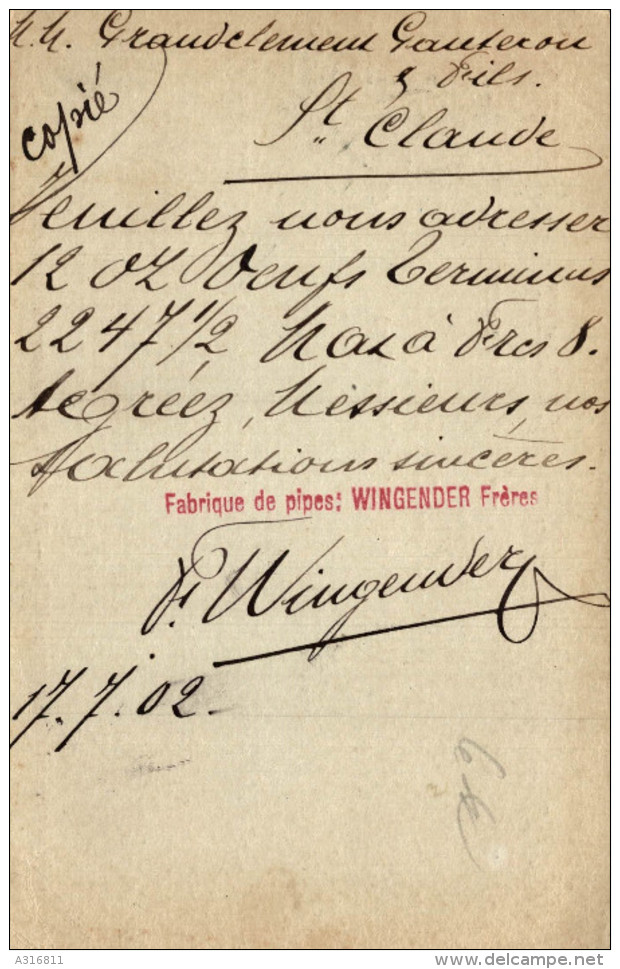 M.M. Grandclement Gauteron
& Fils.
copié
St Claude
Veuillez nous adresser
12 Dz Oeufs Terminus
2247 1/2, à Frcs 8.
Agréez, Messieurs, nos
salutations sincères.
Fabrique de pipes: WINGENDER Frères
Fr. Wingender
17.7.02.
A316811
delcampe.net